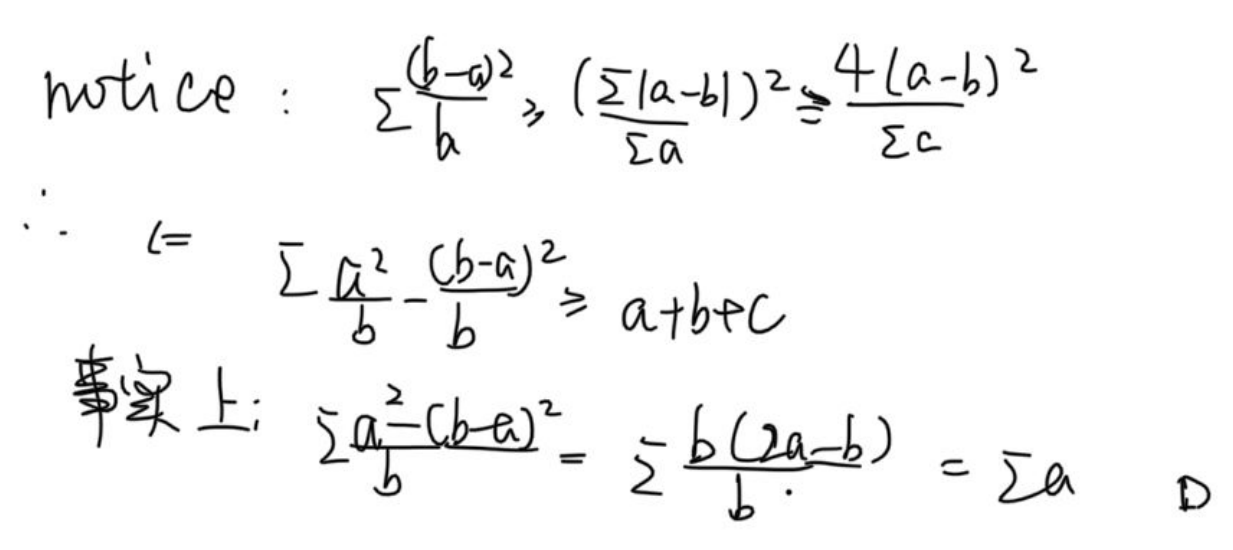 notice : Σ (b-a)²/b ≥ (Σ|a-b|)²/Σa ≥ 4(a-b)²/Σa
∴ ⇐ Σ a²/b - (b-a)²/b ≥ a+b+c
事实上: Σ (a²-(b-a)²)/b = Σ b(2a-b)/b = Σa □